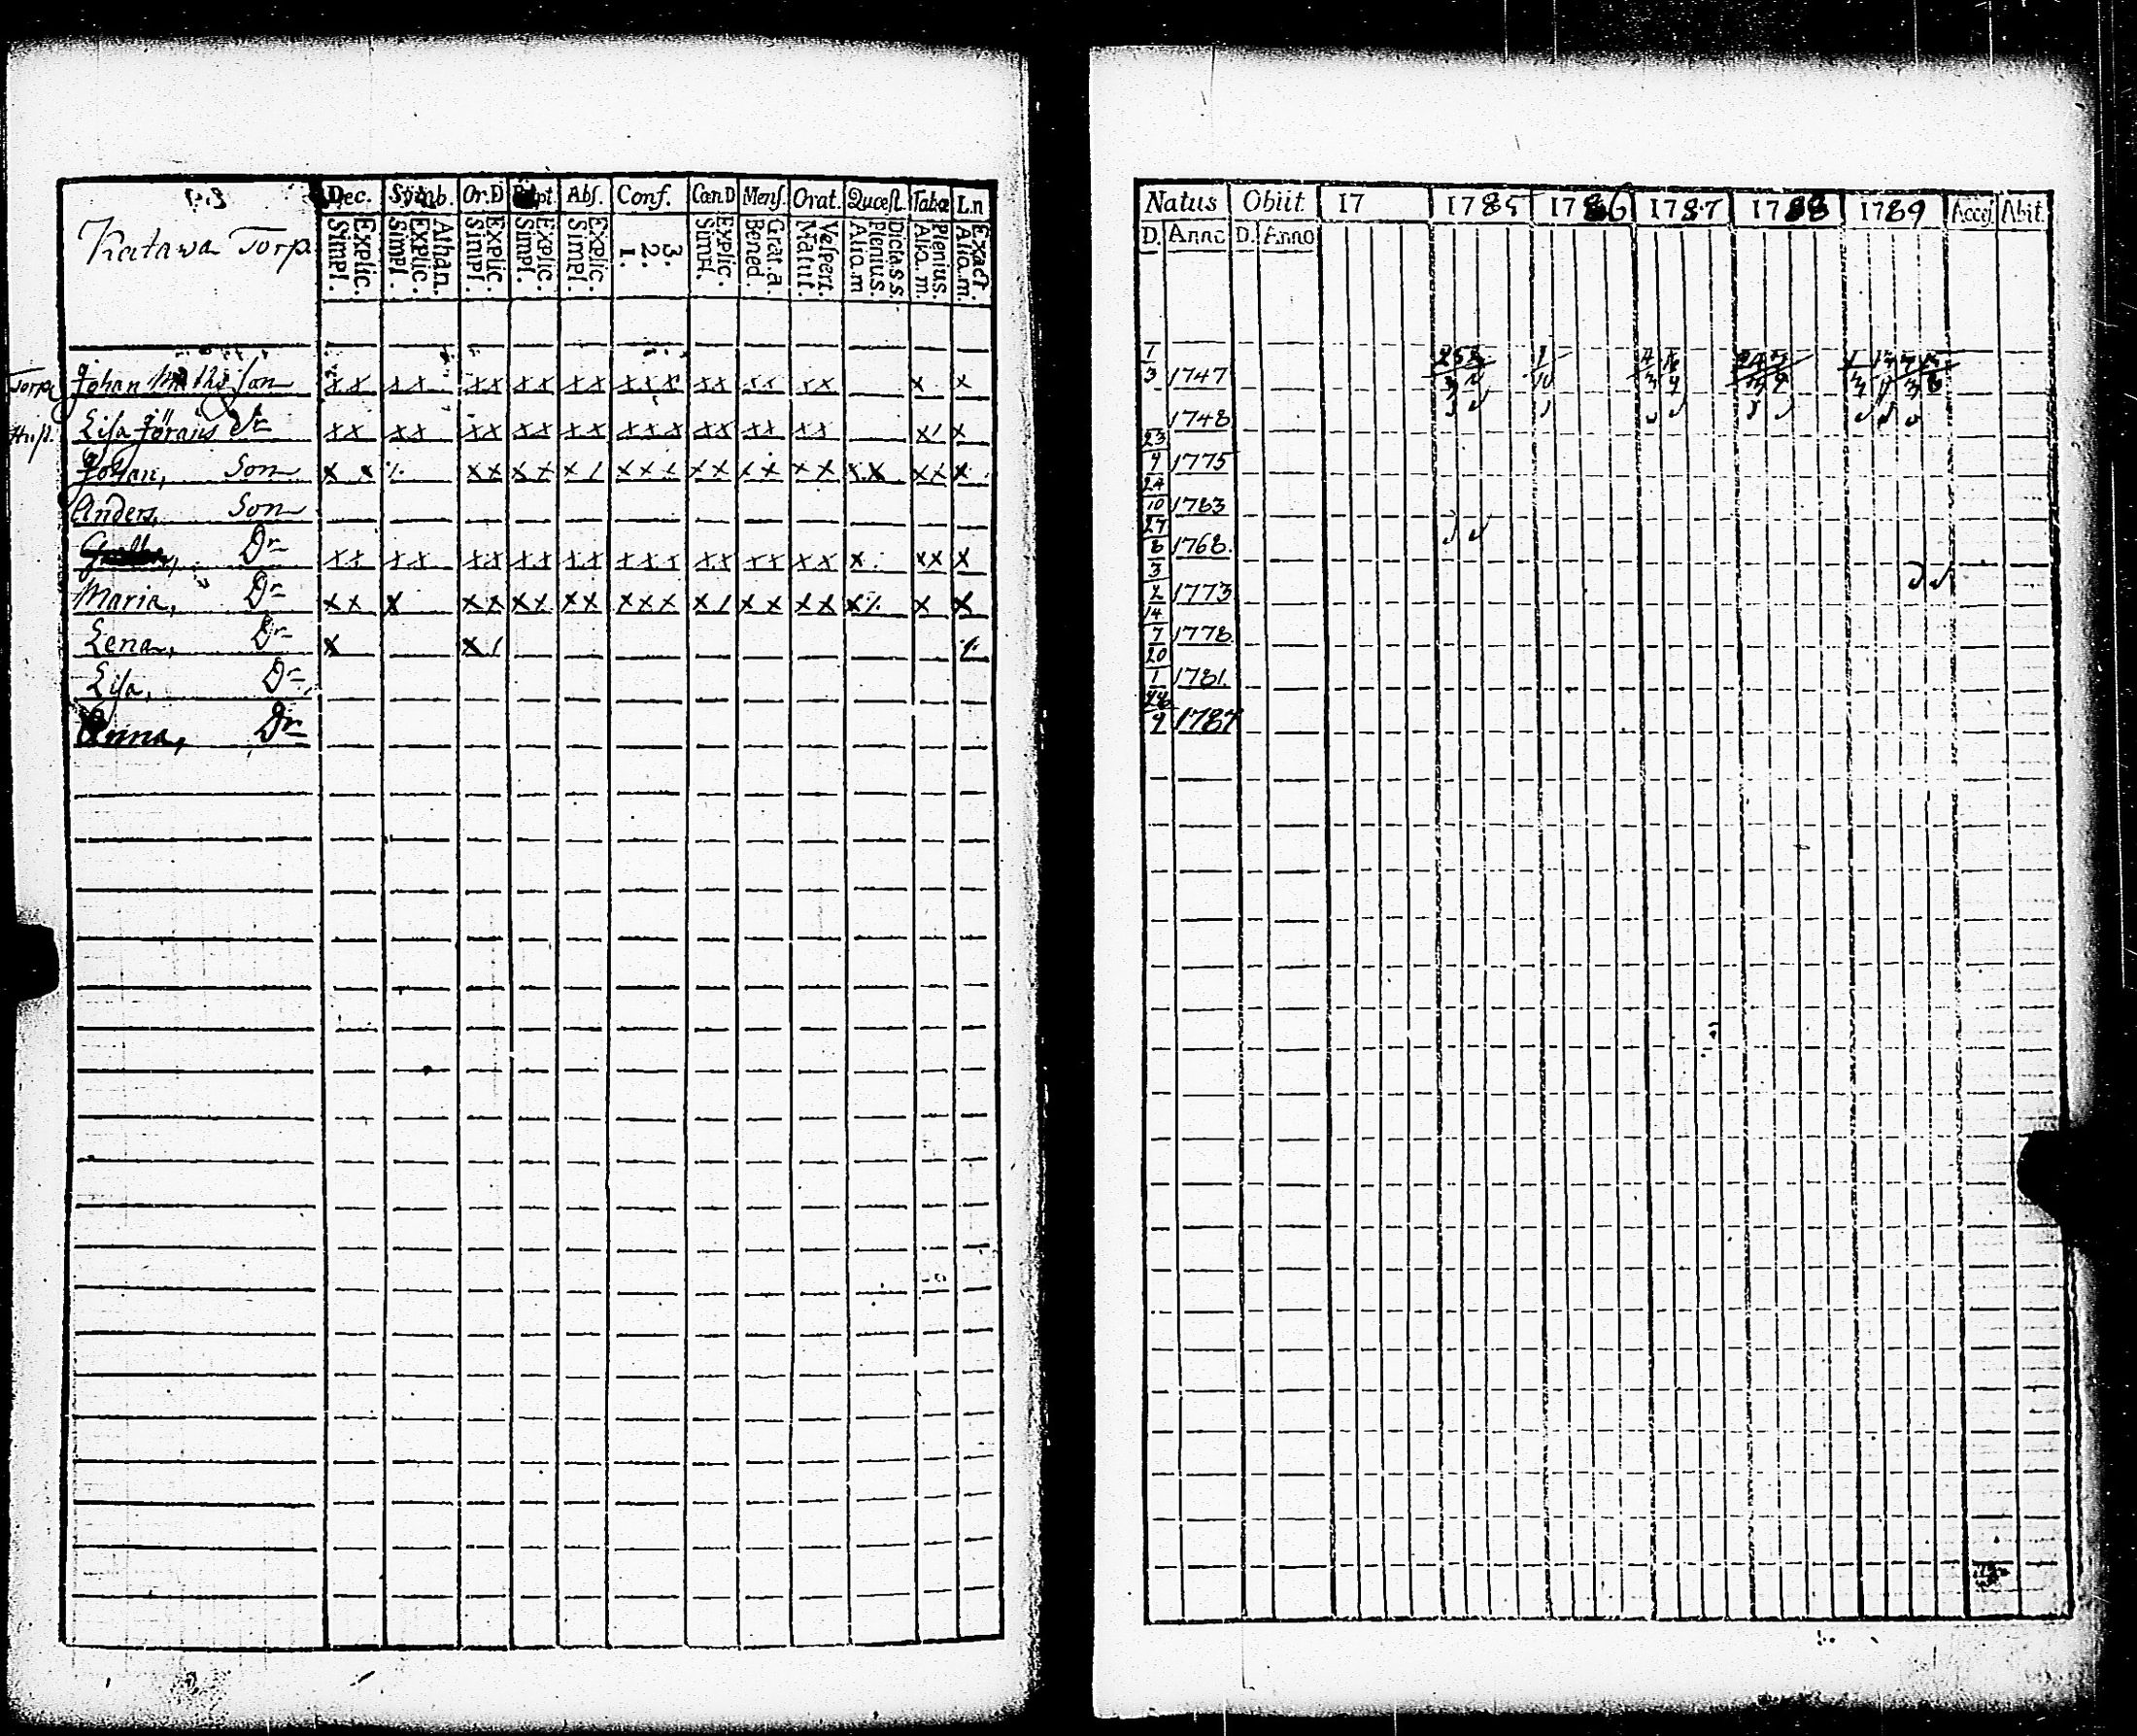 Katawa Torp.
Dec. Symb. Or.D Bapt. Abſ. Conf. Cœn D Menſ. Orat. Quœſt. Tabœ L.n
Explic. Simpl.
Athan. Explic. Simpl.
Explic. Simpl.
Explic. Simpl.
Explic. Simpl.
3. 2. 1.
Explic. Simpl.
Grat. a. Bened.
Veſpert. Matut.
Dicta.S.S. Plenius. Aliq.m
Plenius. Aliq.m.
Exact. Aliq.m.
Torp. Johan Mathsſon xx xx xx xx xx xxx xx xx xx x x
Hust. Liſa Jörans Dr xx xx xx xx xx xxx xx xx xx x/ x
Johan, Son x x xx xx x/ xxx xx xx xx xx xx x
Anders, Son
Dr xx xx xx xx xx xxx xx xx xx x xx x
Maria, Dr xx x xx xx xx xxx x/ xx xx x x
Lena, Dr x x/
Liſa, Dr
Anna, Dr
Natus Obiit 17 1785 1786 1787 1788 1789 Acceſ. Abit.
D. Anno D. Anno
1/3 1747
1748
23/9 1775
24/10 1783
27/8 1768.
3/2 1773
14/7 1778
20/1 1781.
9 1787